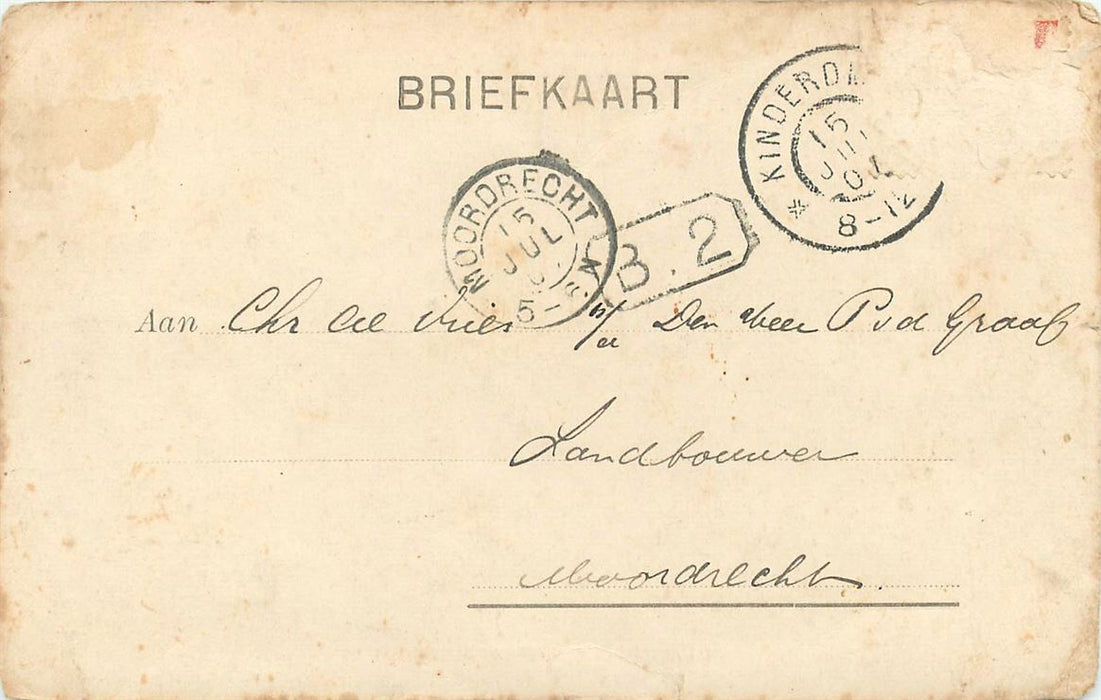 BRIEFKAART
* KINDERDI
15
JUL
8-12
MOORDRECHT
15
JUL
5-
N
B. 2
Aan Chr de Vries p/a Den Heer P v d Graaf
Landbouwer
Moordrecht.